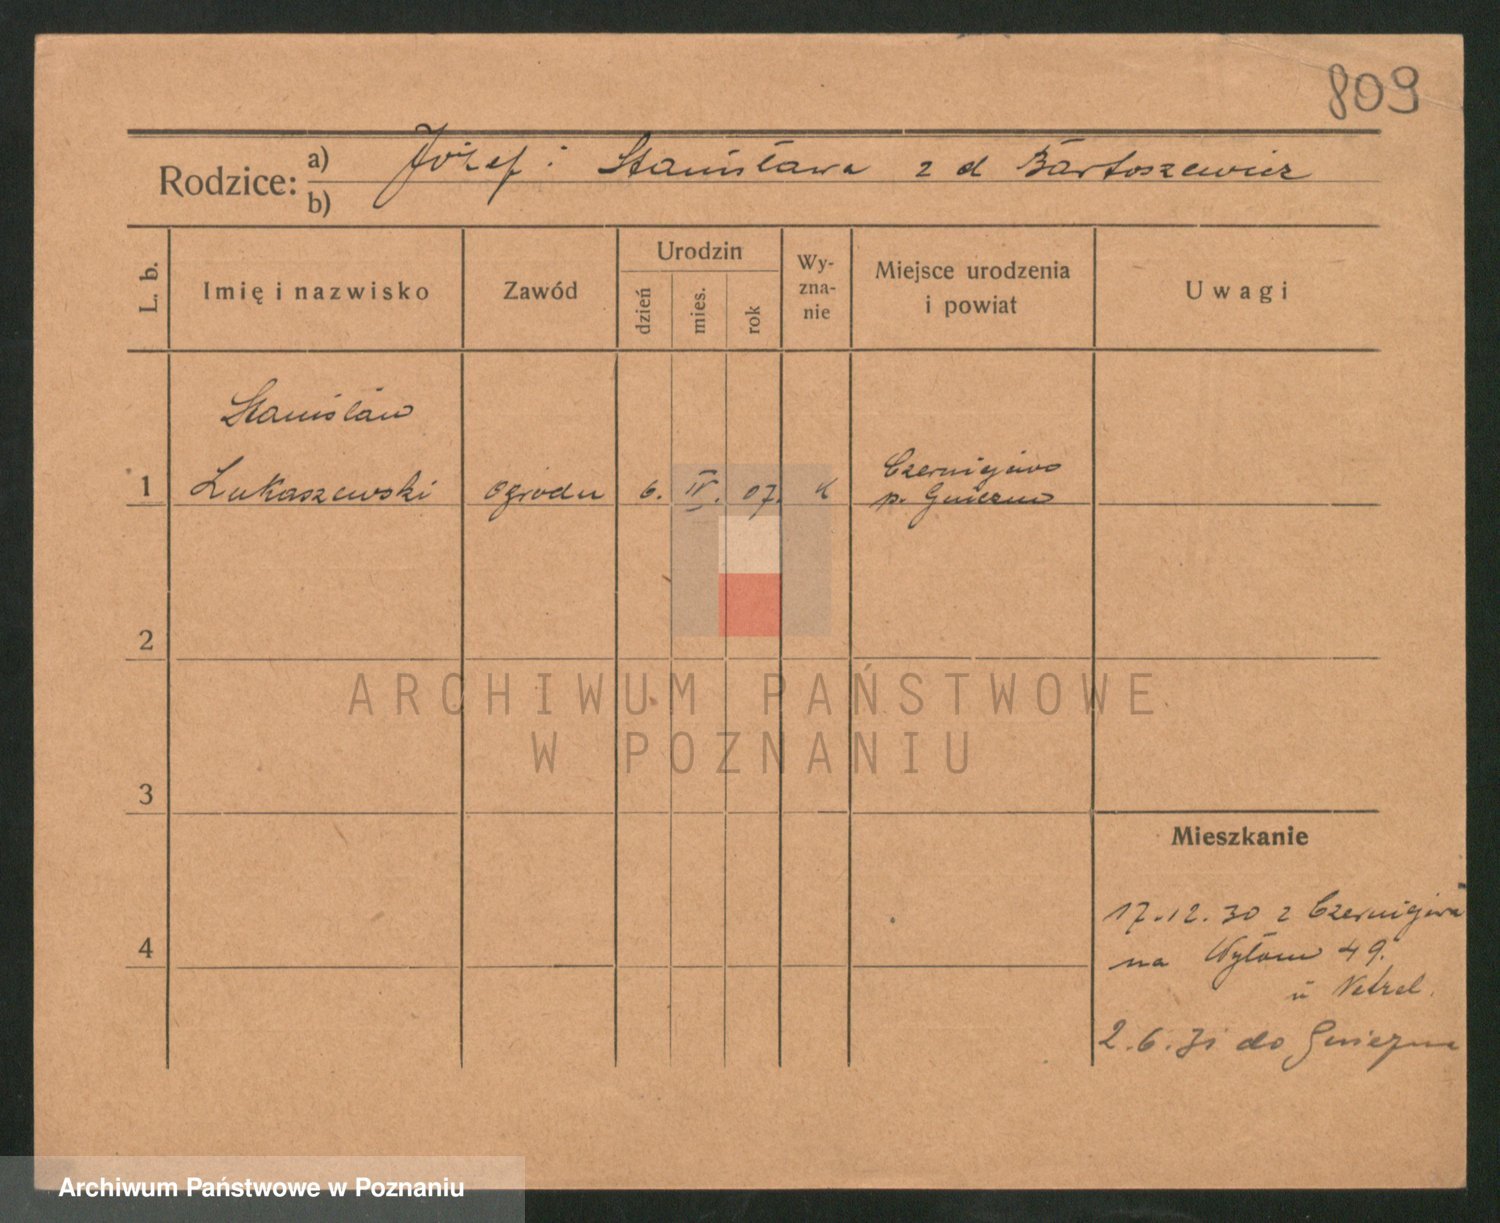 809
Rodzice: a) Józef i Stanisława z d Bartoszewicz
b)
L. b.
Imię i nazwisko
Zawód
Urodzin
dzień
mies.
rok
Wy-
zna-
nie
Miejsce urodzenia
i powiat
Uwagi
Stanisław
1 Łukaszewski ogrodn 6. IV. 07. k
Czerniejewo
p. Gniezno
2
3
4
ARCHIWUM PAŃSTWOWE
W POZNANIU
Mieszkanie
17.12.30 z Czerniejewa
na Wyłom 49.
u
2.6.31 do Gniezna
Archiwum Państwowe w Poznaniu